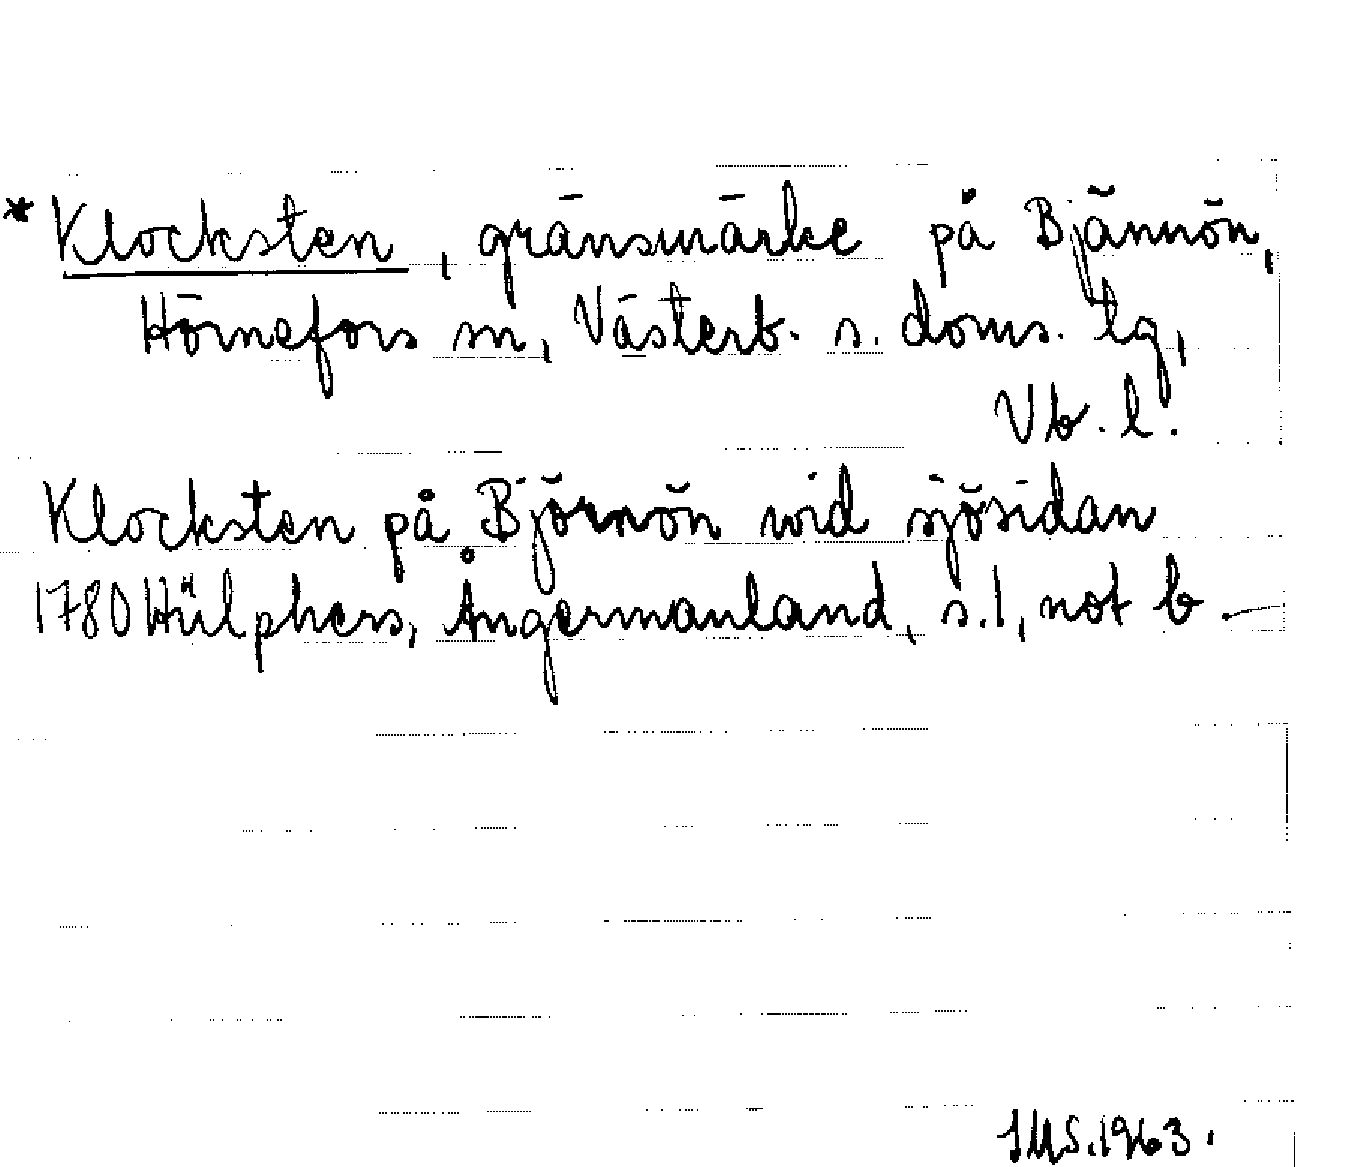 *Klocksten, gränsmärke på Bjännön,
Hörnefors sn, Västerb. s. doms. lg,
Vb. l.
Klocksten på Björnön wid sjösidan
1780 Hülphers, Ångermanland, s. 1, not b.
1963.